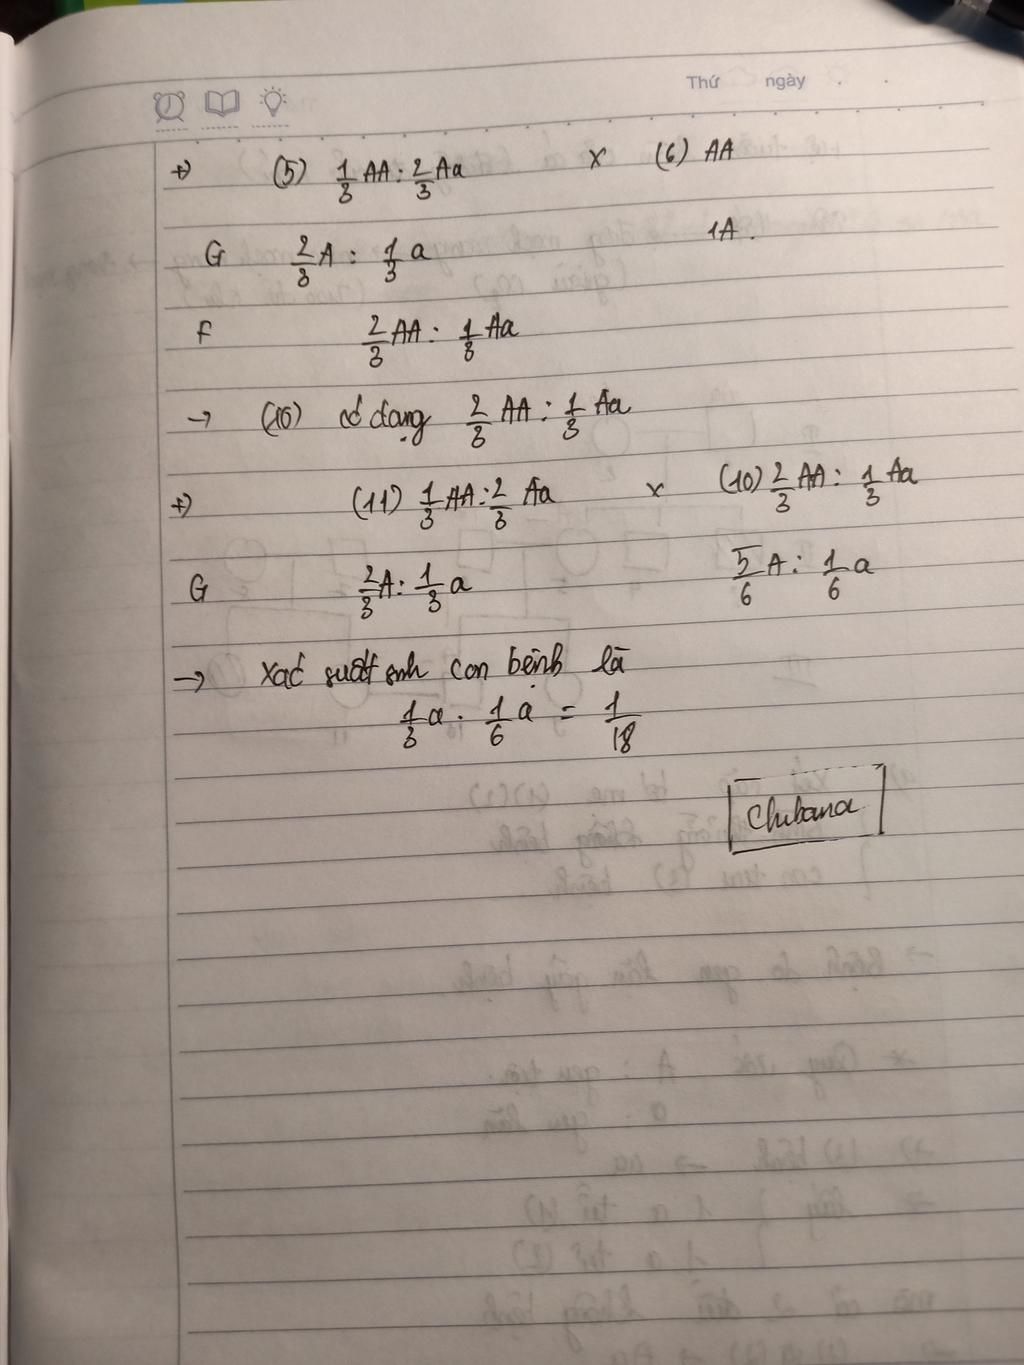 Thứ ngày
+) (5) 1/3 AA : 2/3 Aa x (6) AA
G 2/3 A : 1/3 a 1A.
F 2/3 AA : 1/3 Aa
→ (10) có dạng 2/3 AA : 1/3 Aa
+) (11) 1/3 AA : 2/3 Aa x (10) 2/3 AA : 1/3 Aa
G 2/3 A : 1/3 a 5/6 A : 1/6 a
→ Xác suất sinh con bệnh là
1/3 a . 1/6 a = 1/18